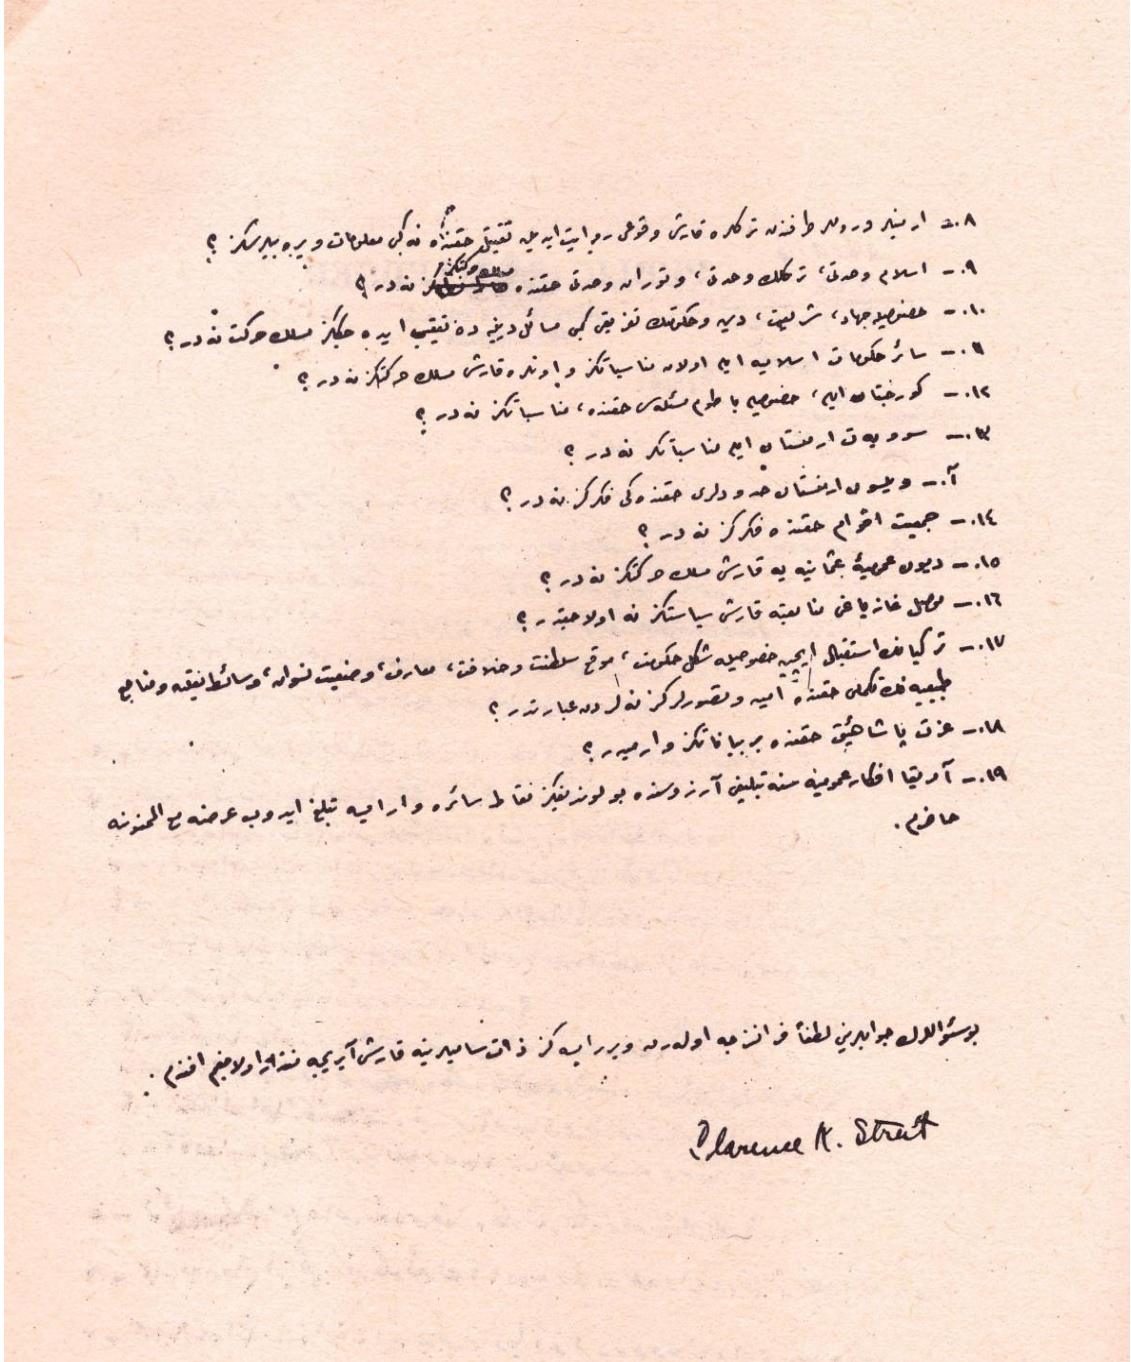 ٨.ـ ارمنیلر و روملر طرفندن تركلره قارشی وقوعی روایت ایدیلن تقتیل حقنده نه كبی معلومات ویره بیلیرسكز ؟
٩.ـ اسلام وحدتی، تركلك وحدتی، و توران وحدتی حقنده مسلك حركتكز نه در ؟
١٠.ـ خصوصیله جهاد، شریعت، دین و حكومتك تفریقی كبی مسائل دینیه ده تعقیب ایده جككز مسلك حركت نه در ؟
١١.ـ سائر حكومات اسلامیه ایله اولان مناسباتكز و اونلره قارشی مسلك حركتكز نه در ؟
١٢.ـ كورجستان ایله، خصوصیله باطوم مسئله‌سی حقنده، مناسباتكز نه در ؟
١٣.ـ سوویه‌ت ارمنستان ایله مناسباتكز نه در ؟
آ.ـ ویلسون ارمنستان حدودلری حقنده كی فكركز نه در ؟
١٤.ـ جمعیت اقوام حقنده فكركز نه در ؟
١٥.ـ دیون عمومیهٔ عثمانیه یه قارشی مسلك حركتكز نه در ؟
١٦.ـ موصل غاز یاغی منابعنه قارشی سیاستكز نه اولاجقدر ؟
١٧.ـ تركیانك استقبالی ایچین خصوصیله شكل حكومت، موقع سلطنت و خلافت، معارف، وضعیت نسوان، وسائط نقلیه و منابع
طبیعیه نك تكملی حقنده امید و تصورلركز نه لردن عبارتدر ؟
١٨.ـ عزت پاشا هیئتی حقنده بر بیاناتكز وارمیدر ؟
١٩.ـ آمریقا افكار عمومیه سنه تبلیغی آرزوسنده بولوندیغكز نقاط سائره وار ایسه تبلیغ ایدوب عرضه مع الممنونیه
حاضرم.
بو سئواللرك جوابلرینی لطفاً فرانزجه اوله‌رق ویرر ایسه‌كز ذات سامیلرینه قارشی آیریجه منتدار اولاجغم افندم.
Clarence K. Streit